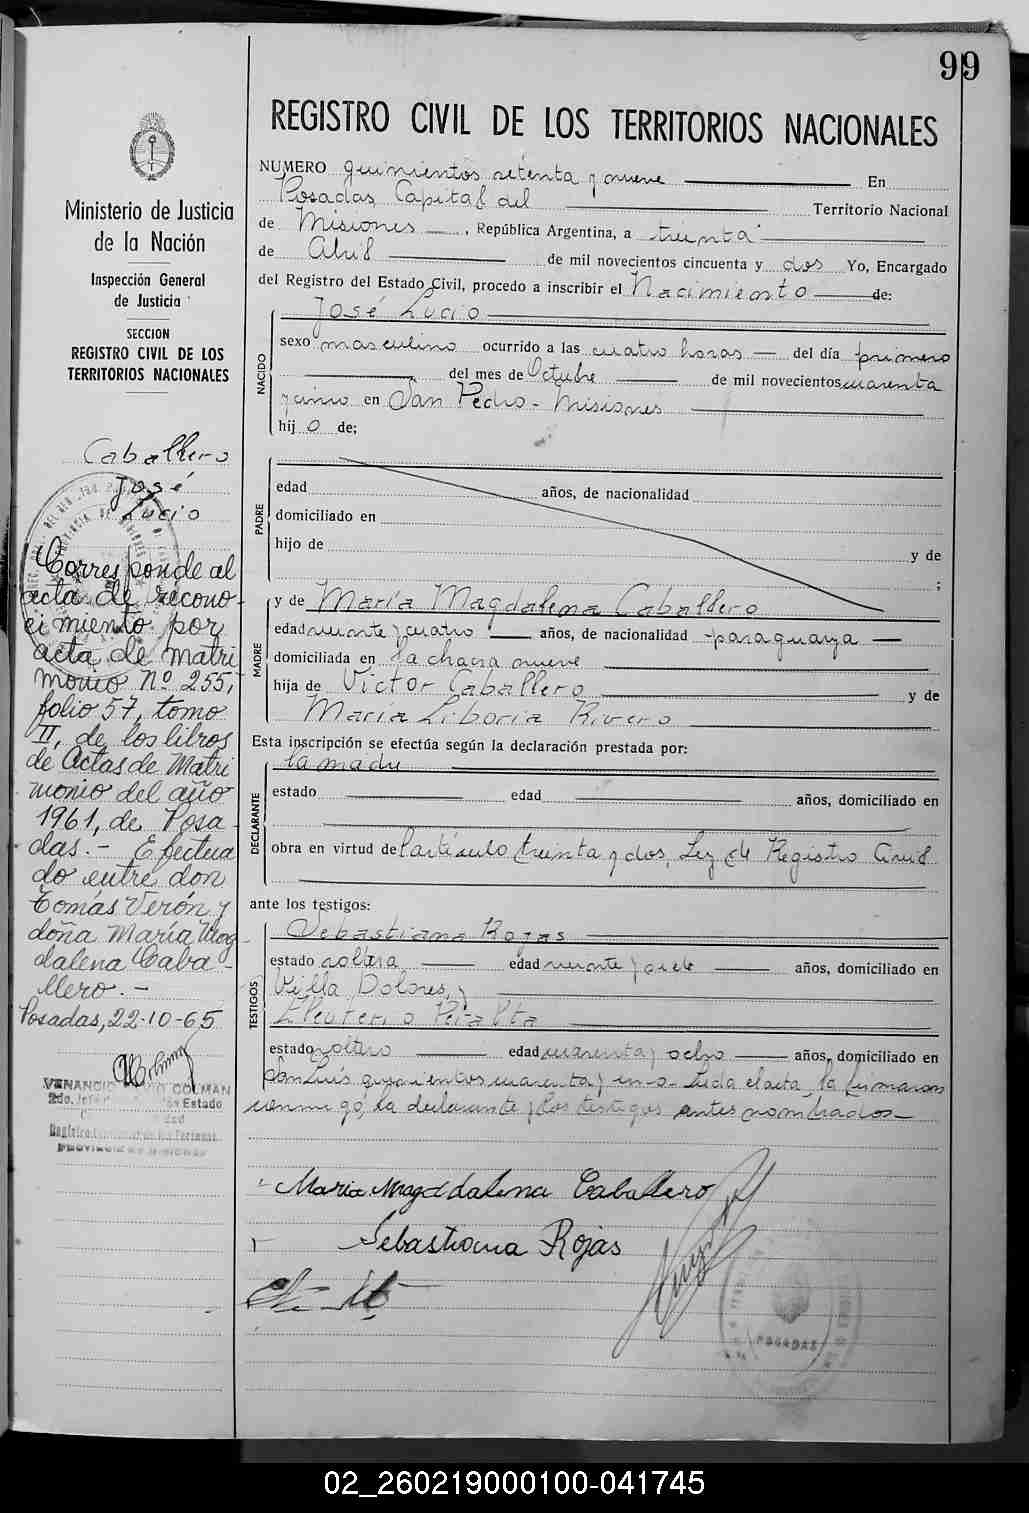 99
REGISTRO CIVIL DE LOS TERRITORIOS NACIONALES
NUMERO quinientos setenta y nueve En
Posadas Capital del Territorio Nacional
de Misiones, República Argentina, a treinta
de Abril de mil novecientos cincuenta y dos Yo, Encargado
del Registro del Estado Civil, procedo a inscribir el Nacimiento de:
José Lucio
NACIDO
sexo masculino ocurrido a las cuatro horas del día primero
del mes de Octubre de mil novecientos cuarenta
y cinco en San Pedro - Misiones
hij o de;
PADRE
edad años, de nacionalidad
domiciliado en
hijo de y de
;
MADRE
y de María Magdalena Caballero
edad veinte y cuatro años, de nacionalidad paraguaya
domiciliada en la chacra nueve
hija de Victor Caballero y de
María Liboria Rivero
Esta inscripción se efectúa según la declaración prestada por:
la madre
DECLARANTE
estado edad años, domiciliado en
obra en virtud del artículo treinta y dos, Ley de Registro Civil
ante los testigos:
TESTIGOS
Sebastiana Rojas
estado soltera edad veinte y siete años, domiciliado en
Villa Dolores, y
Eleuterio Peralta
estado soltero edad cuarenta y ocho años, domiciliado en
San Luis quinientos cuarenta y uno. Leida el acta, la firmaron
conmigo, la declarante y los testigos antes nombrados
Maria Magddalena Caballero
Sebastiana Rojas
POSADAS
Ministerio de Justicia
de la Nación
Inspección General
de Justicia
SECCION
REGISTRO CIVIL DE LOS
TERRITORIOS NACIONALES
Caballero
José
Lucio
Corresponde al
acta de recono-
cimiento por
acta de matri
monio Nº 255,
folio 57, tomo
II, de los libros
de Actas de Matri
monio del año
1961, de Posa
das.- Efectua
do entre don
Tomás Verón y
doña María Mag
dalena Caba-
llero.-
Posadas, 22-10-65
VENANCIO COLMAN
2do. Jefe Estado
PROVINCIA DE MISIONES
02_260219000100-041745